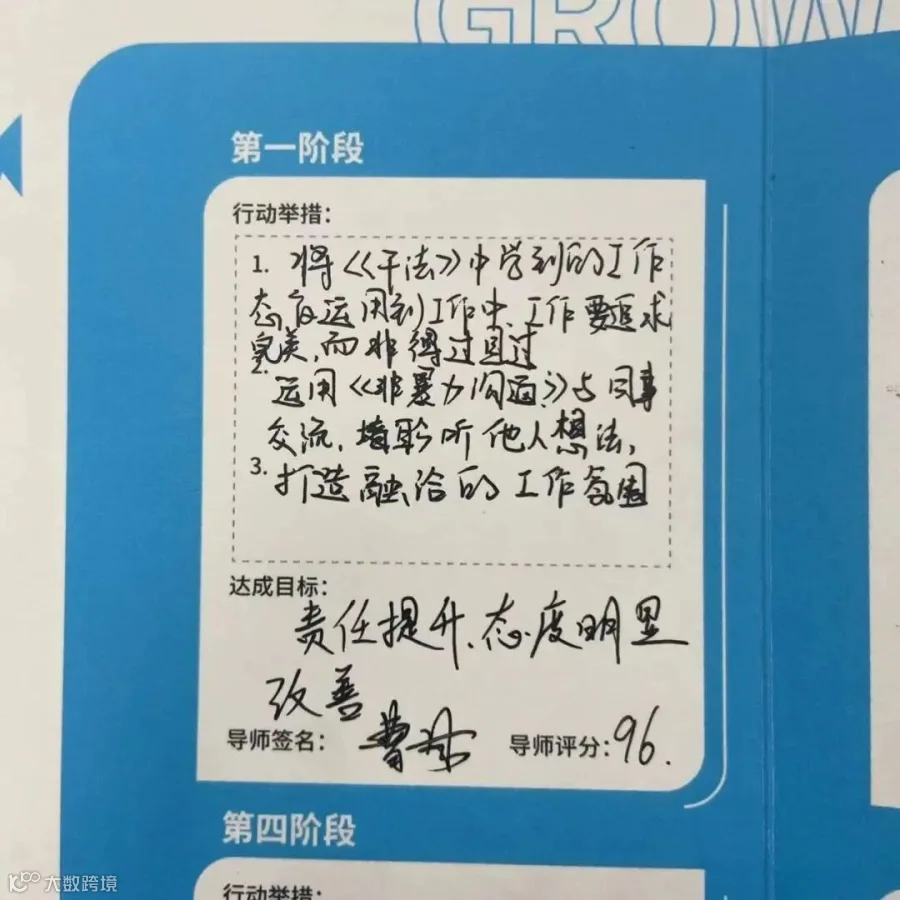 GROW
第一阶段
行动举措:
1. 将《干法》中学到的工作
态度运用到工作中、工作要追求
完美,而非得过且过
2.
运用《非暴力沟通》与同事
交流,聆听他人想法,
3. 打造融洽的工作氛围
达成目标:
责任提升、态度明显
改善
导师签名: 曹
导师评分: 96.
第四阶段
行动举措:
大数跨境